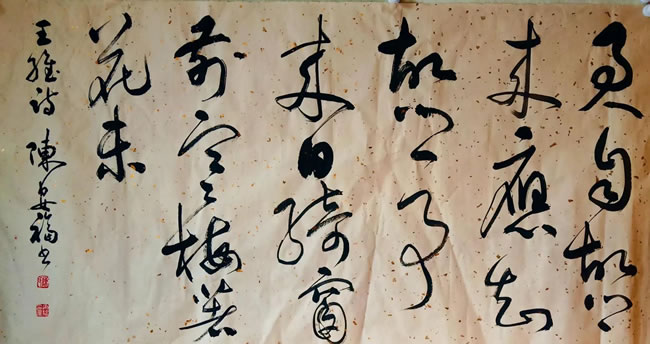 君自故鄉
来應知
故鄉事
来日綺窗
前寒梅著
花未
王維詩 陳安福书